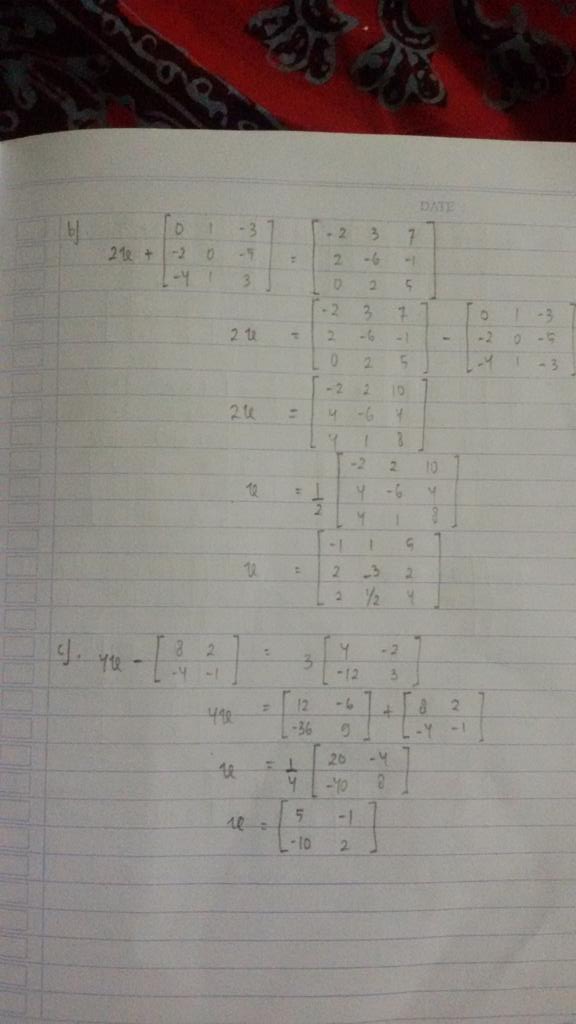 DATE
b) 2x + [0 1 -3; -2 0 -5; -4 1 3] = [-2 3 7; 2 -6 -1; 0 2 5]
2x = [-2 3 7; 2 -6 -1; 0 2 5] - [0 1 -3; -2 0 -5; -4 1 -3]
2x = [-2 2 10; 4 -6 4; 4 1 8]
x = 1/2 [-2 2 10; 4 -6 4; 4 1 8]
x = [-1 1 5; 2 -3 2; 2 1/2 4]
c). 4x - [8 2; -4 -1] = 3 [4 -2; -12 3]
4x = [12 -6; -36 9] + [8 2; -4 -1]
x = 1/4 [20 -4; -40 8]
x = [5 -1; -10 2]